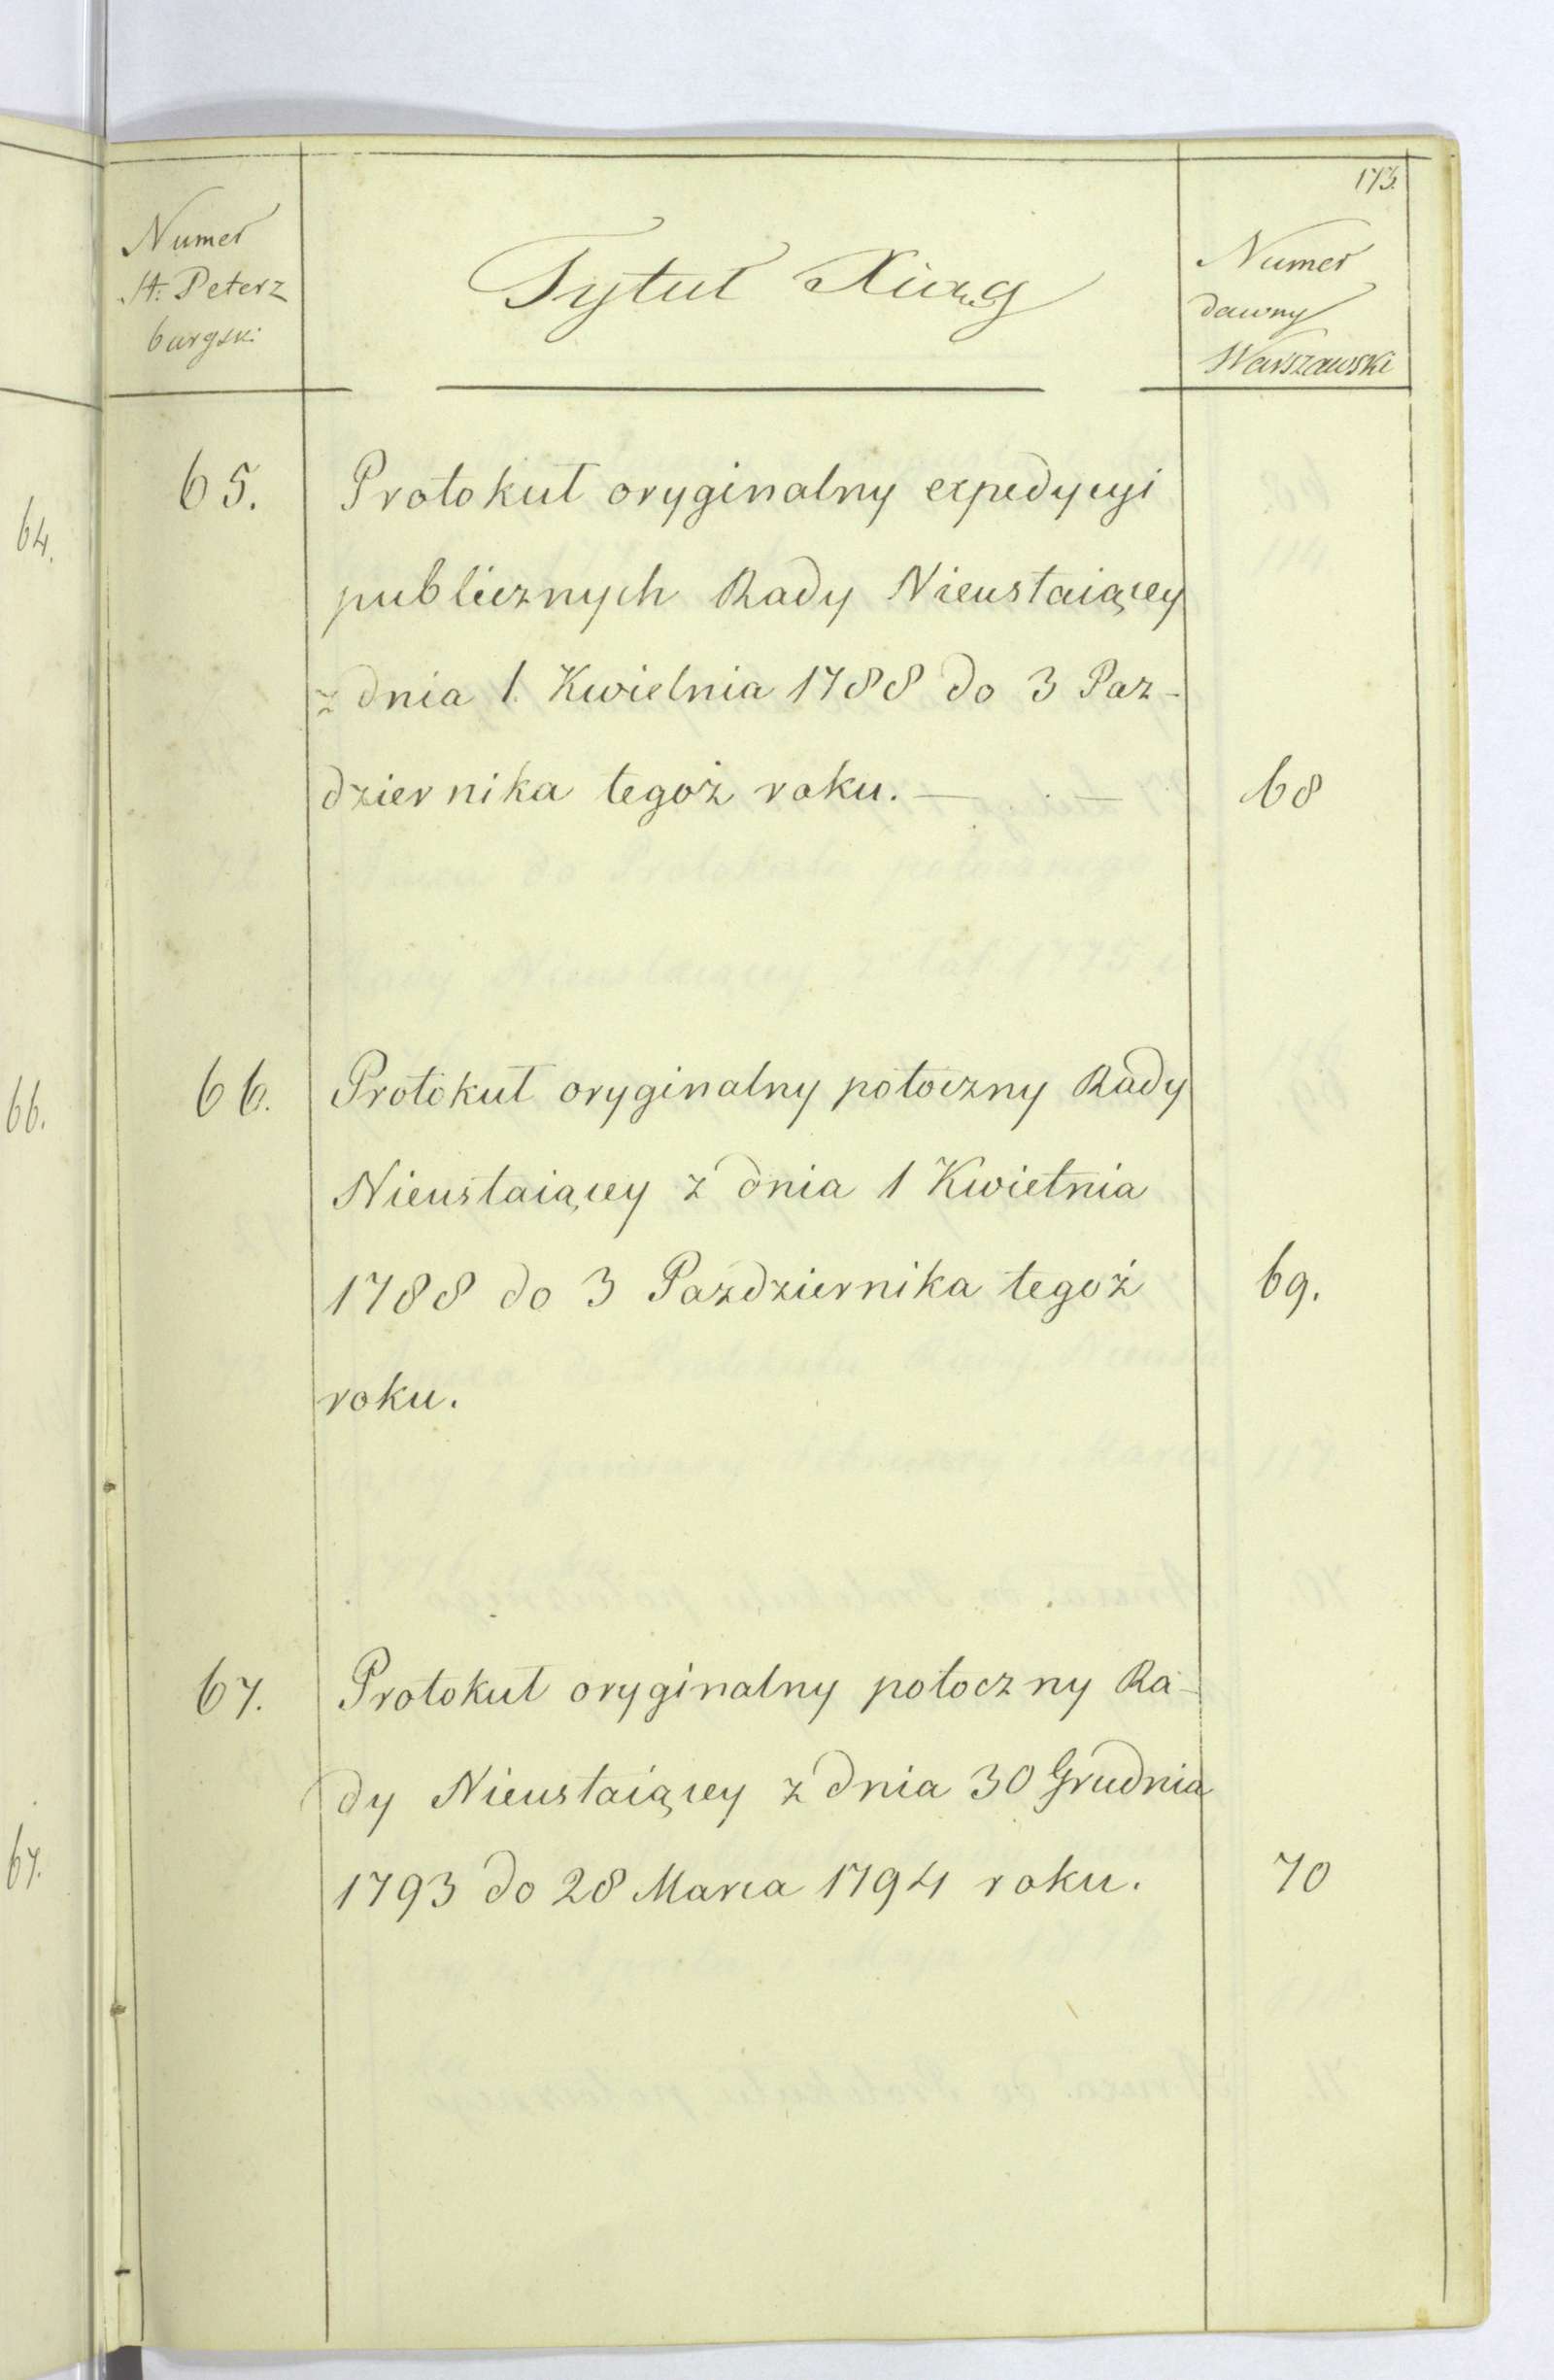 173.
Numer
St. Peterz
burgski
Tytuł Xiąg
Numer
dawny
Warszawski
65.
Protokuł oryginalny expedycyi
publicznych Rady Nieustaiącey
z dnia 1 Kwietnia 1788 do 3 Paz-
dziernika tegoż roku. —
68
66.
Protokuł oryginalny potoczny Rady
Nieustaiącey z dnia 1 Kwietnia
1788 do 3 Pazdziernika tegoż
69.
roku.
67.
Protokuł oryginalny potoczny Ra-
dy Nieustaiącey z dnia 30 Grudnia
1793 do 28 Marca 1794 roku.
70
64.
66.
67.